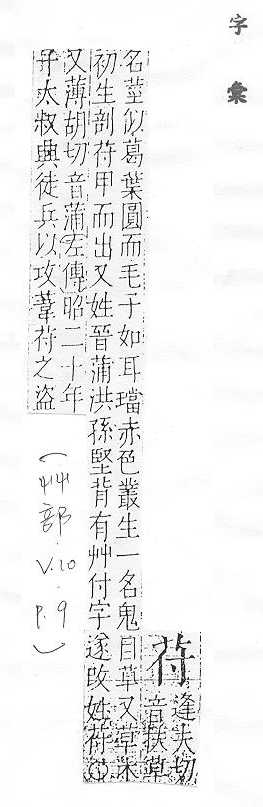 字彙
苻
逢夫切
音扶草
名莖似葛葉圓而毛子如耳璫赤色叢生一名鬼目草又草木
初生剖苻甲而出又姓晉蒲洪孫堅背有艸付字遂改姓苻〇
又薄胡切音蒲左傳昭二十年
太叔興徒兵以攻葦苻之盜
(艸部.V.10.P.9)